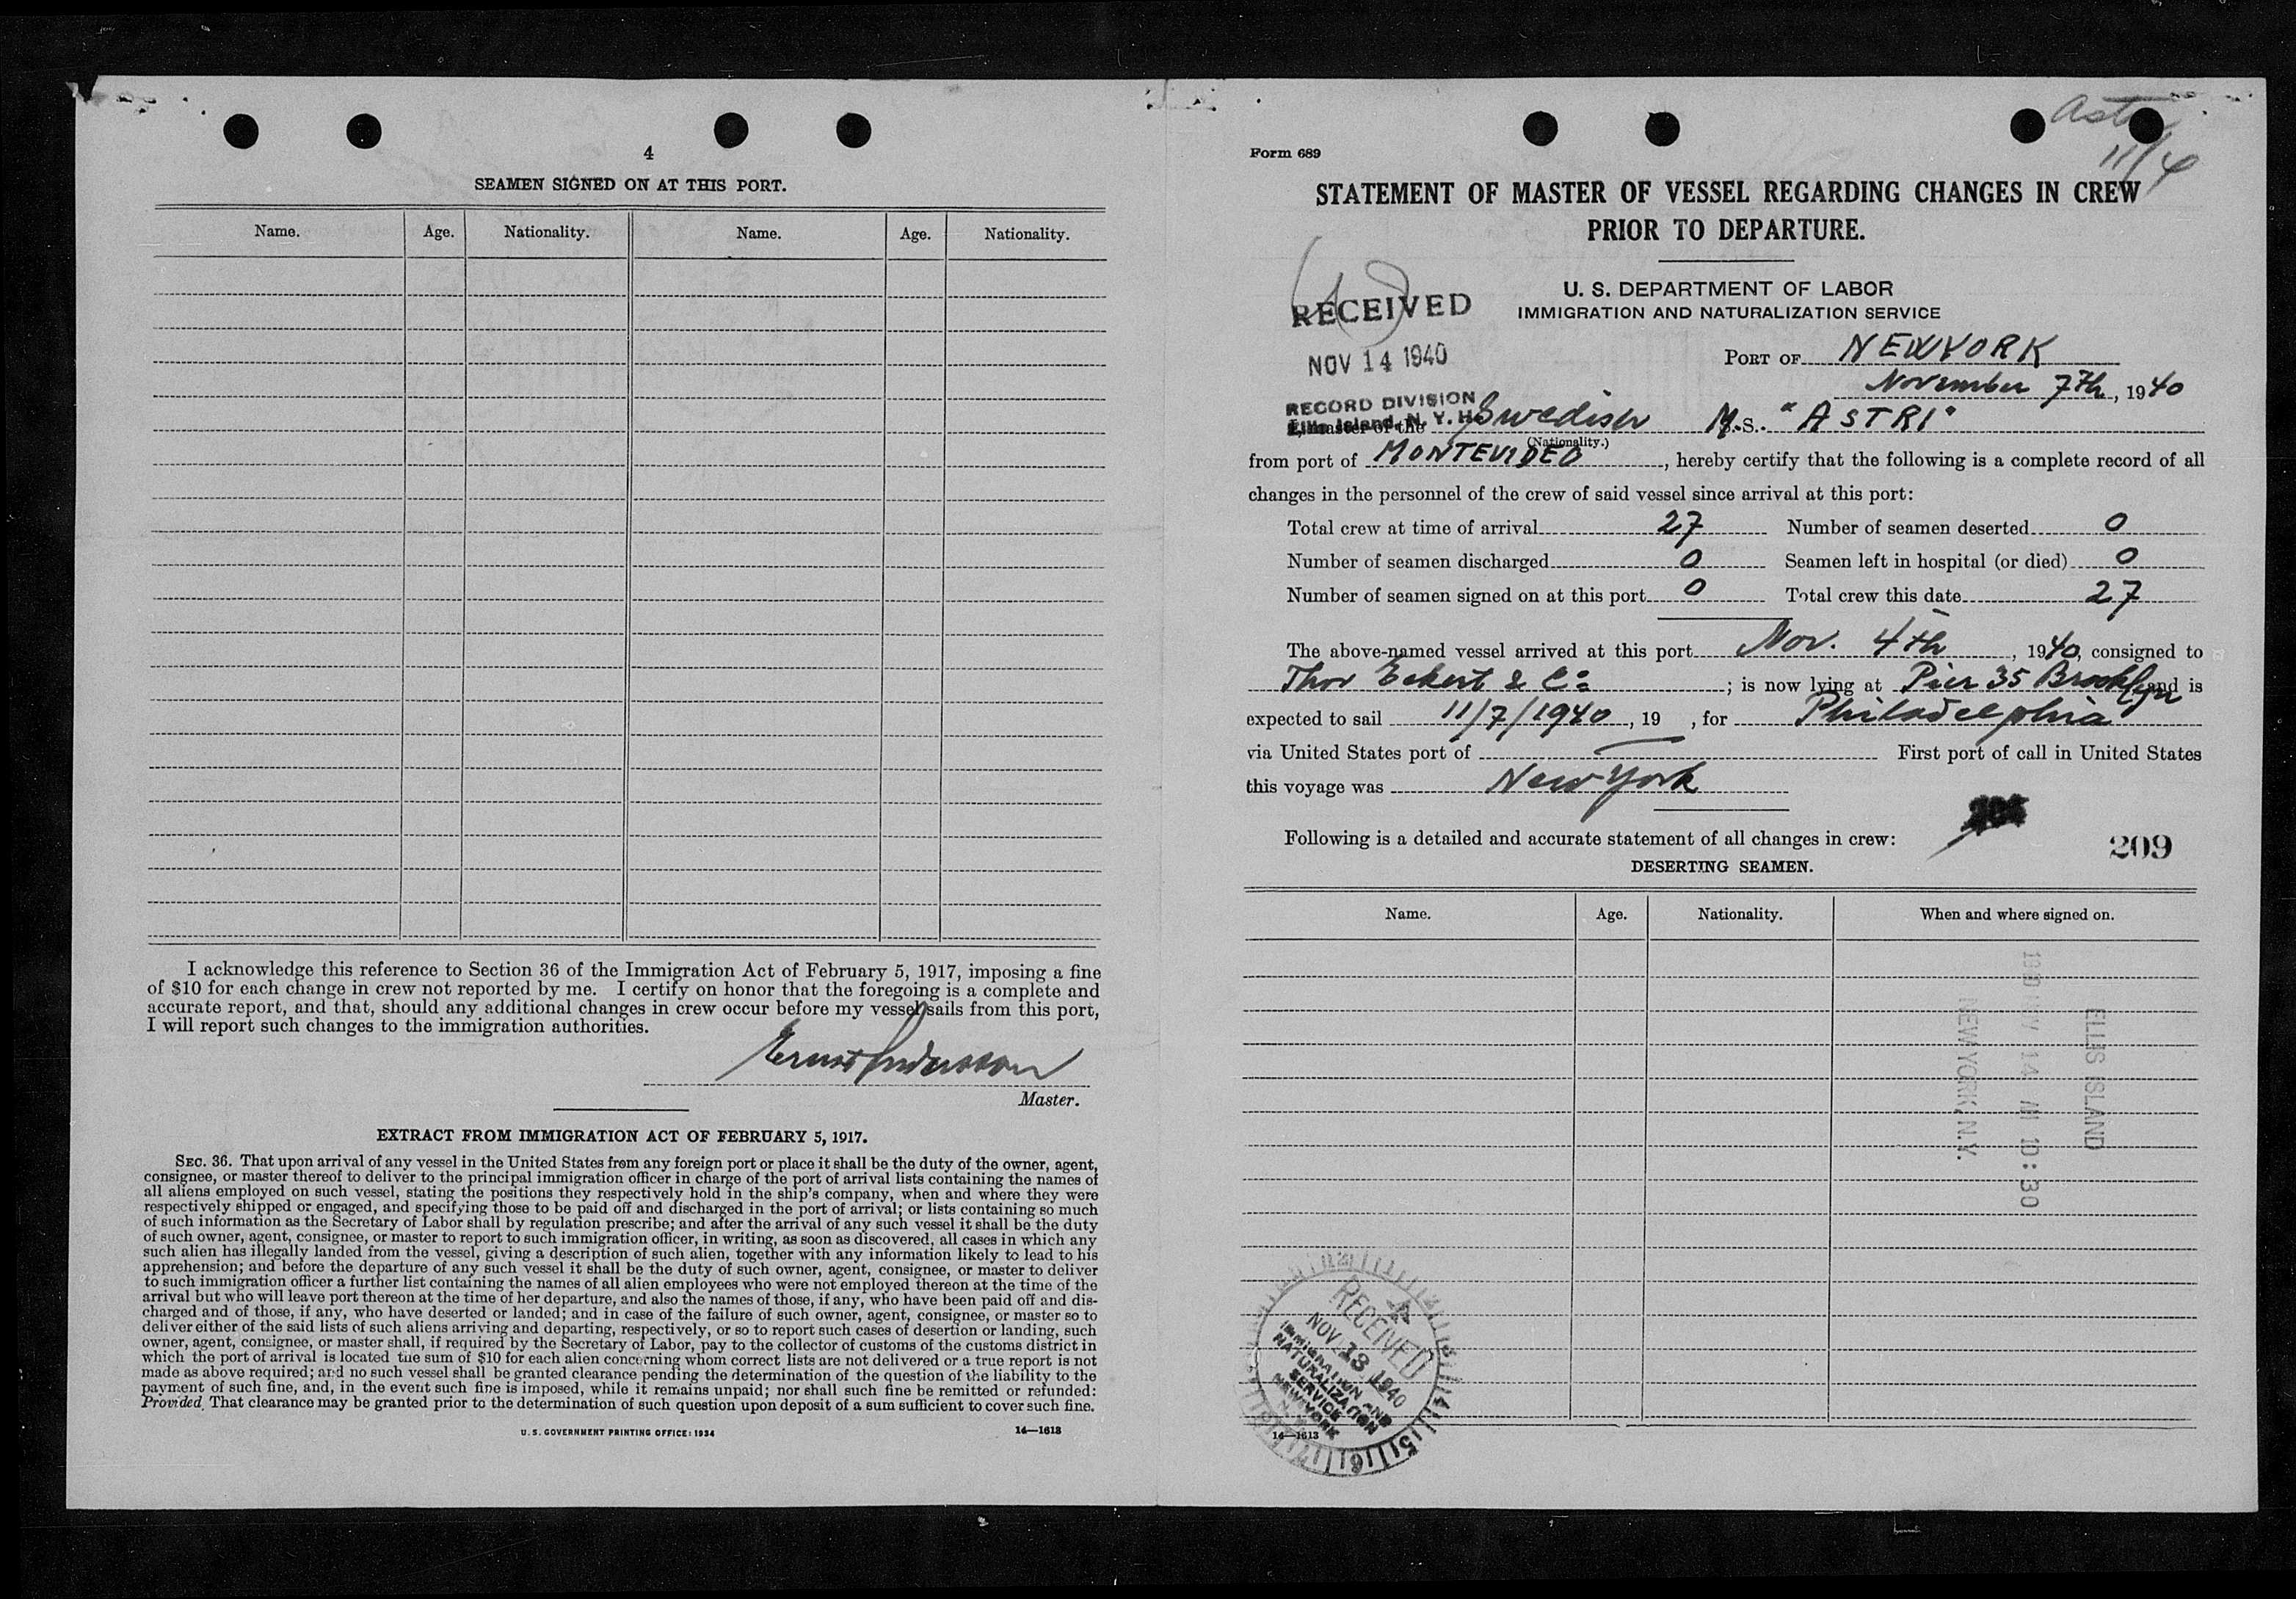 4
SEAMEN SIGNED ON AT THIS PORT.
Name. Age. Nationality. Name. Age. Nationality.
I acknowledge this reference to Section 36 of the Immigration Act of February 5, 1917, imposing a fine
of $10 for each change in crew not reported by me. I certify on honor that the foregoing is a complete and
accurate report, and that, should any additional changes in crew occur before my vessel sails from this port,
I will report such changes to the immigration authorities.
Ernst Andersson
Master.
EXTRACT FROM IMMIGRATION ACT OF FEBRUARY 5, 1917.
SEC. 36. That upon arrival of any vessel in the United States from any foreign port or place it shall be the duty of the owner, agent,
consignee, or master thereof to deliver to the principal immigration officer in charge of the port of arrival lists containing the names of
all aliens employed on such vessel, stating the positions they respectively hold in the ship's company, when and where they were
respectively shipped or engaged, and specifying those to be paid off and discharged in the port of arrival; or lists containing so much
of such information as the Secretary of Labor shall by regulation prescribe; and after the arrival of any such vessel it shall be the duty
of such owner, agent, consignee, or master to report to such immigration officer, in writing, as soon as discovered, all cases in which any
such alien has illegally landed from the vessel, giving a description of such alien, together with any information likely to lead to his
apprehension; and before the departure of any such vessel it shall be the duty of such owner, agent, consignee, or master to deliver
to such immigration officer a further list containing the names of all alien employees who were not employed thereon at the time of the
arrival but who will leave port thereon at the time of her departure, and also the names of those, if any, who have been paid off and dis-
charged and of those, if any, who have deserted or landed; and in case of the failure of such owner, agent, consignee, or master so to
deliver either of the said lists of such aliens arriving and departing, respectively, or so to report such cases of desertion or landing, such
owner, agent, consignee, or master shall, if required by the Secretary of Labor, pay to the collector of customs of the customs district in
which the port of arrival is located the sum of $10 for each alien concerning whom correct lists are not delivered or a true report is not
made as above required; and no such vessel shall be granted clearance pending the determination of the question of the liability to the
payment of such fine, and, in the event such fine is imposed, while it remains unpaid; nor shall such fine be remitted or refunded:
Provided, That clearance may be granted prior to the determination of such question upon deposit of a sum sufficient to cover such fine.
U. S. GOVERNMENT PRINTING OFFICE: 1934 14—1613
11/4
Form 689
STATEMENT OF MASTER OF VESSEL REGARDING CHANGES IN CREW
PRIOR TO DEPARTURE.
U. S. DEPARTMENT OF LABOR
IMMIGRATION AND NATURALIZATION SERVICE
RECEIVED
NOV 14 1940
RECORD DIVISION
Ellis Island, N. Y. H.
PORT OF NEWYORK
November 7th, 1940
I, master of the Swedish M.S. "ASTRI"
(Nationality.)
from port of MONTEVIDEO, hereby certify that the following is a complete record of all
changes in the personnel of the crew of said vessel since arrival at this port:
Total crew at time of arrival 27 Number of seamen deserted 0
Number of seamen discharged 0 Seamen left in hospital (or died) 0
Number of seamen signed on at this port 0 Total crew this date 27
The above-named vessel arrived at this port Nov. 4th, 1940, consigned to
Thor Eckert & Co; is now lying at Pier 35 Brooklyn and is
expected to sail 11/7/1940, 19 , for Philadelphia
via United States port of — First port of call in United States
this voyage was New York
Following is a detailed and accurate statement of all changes in crew:
209
DESERTING SEAMEN.
Name. Age. Nationality. When and where signed on.
ELLIS ISLAND
1940 NOV 14 AM 10:30
NEW YORK, N.Y.
RECEIVED
NOV 13 1940
IMMIGRATION AND
NATURALIZATION
SERVICE
NEW YORK
14—1613